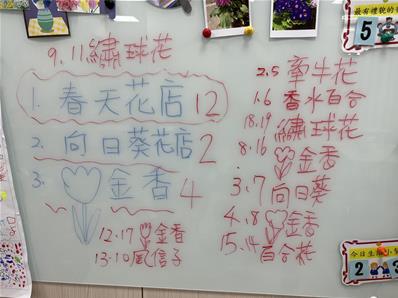 9.11.繡球花
1.春天花店12
2.向日葵花店2
3.金香4
12.17金香
13.10風信子
2.5牽牛花
1.6香水百合
18.19繡球花
8.16金香
3.7向日葵
4.18金香
15.14百合花
最有禮貌的
5
今日生
2 3